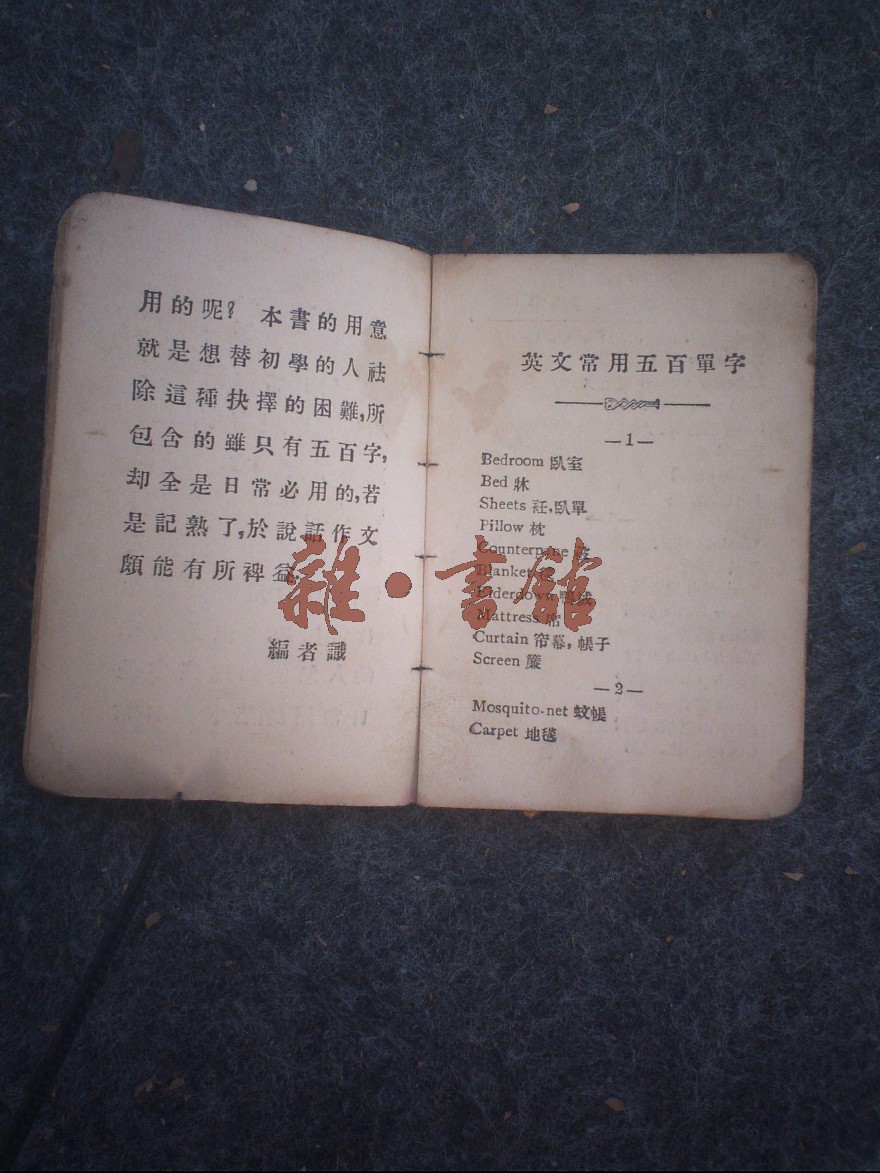 用的呢？ 本書的用意
就是想替初學的人祛
除這種抉擇的困難,所
包含的雖只有五百字,
却全是日常必用的,若
是記熟了,於說話作文
頗能有所裨益.
編者識
英文常用五百單字
—1—
Bedroom 臥室
Bed 牀
Sheets 衽,臥單
Pillow 枕
Counterpane
Blanket
Eiderdown 鴨絨
Mattress 席
Curtain 帘幕, 帳子
Screen 簾
—2—
Mosquito-net 蚊帳
Carpet 地毯
雜·書館